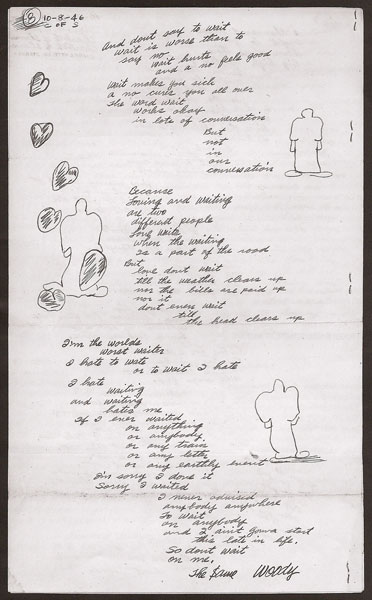 8
10-8-46
C OF S
And dont say to wait
wait is worse than to
say no.
wait hurts
and a no feels good
wait makes you sick
a no cures you all over
The word wait
works okay
in lots of conversations
But
not
in
our
conversations
Because
Loving and waiting
are two
different people
Love waits
when the waiting
Is a part of the road
But
love dont wait
till the weather clears up
nor the bills are paid up
nor it
dont even wait
till
the head clears up
I'm the worlds
worst waiter
I hate to wate
or to wait I hate
I hate
waiting
and waiting
hates me
If I ever waited
on anything
or anybody
or any train
or any letter
or any earthly event
I'm sorry I done it
Sorry I waited
I never advised
anybody anywhere
To wait
on anybody
and I ain't gonna start
this late in life.
So dont wait
on me.
The Same Woody